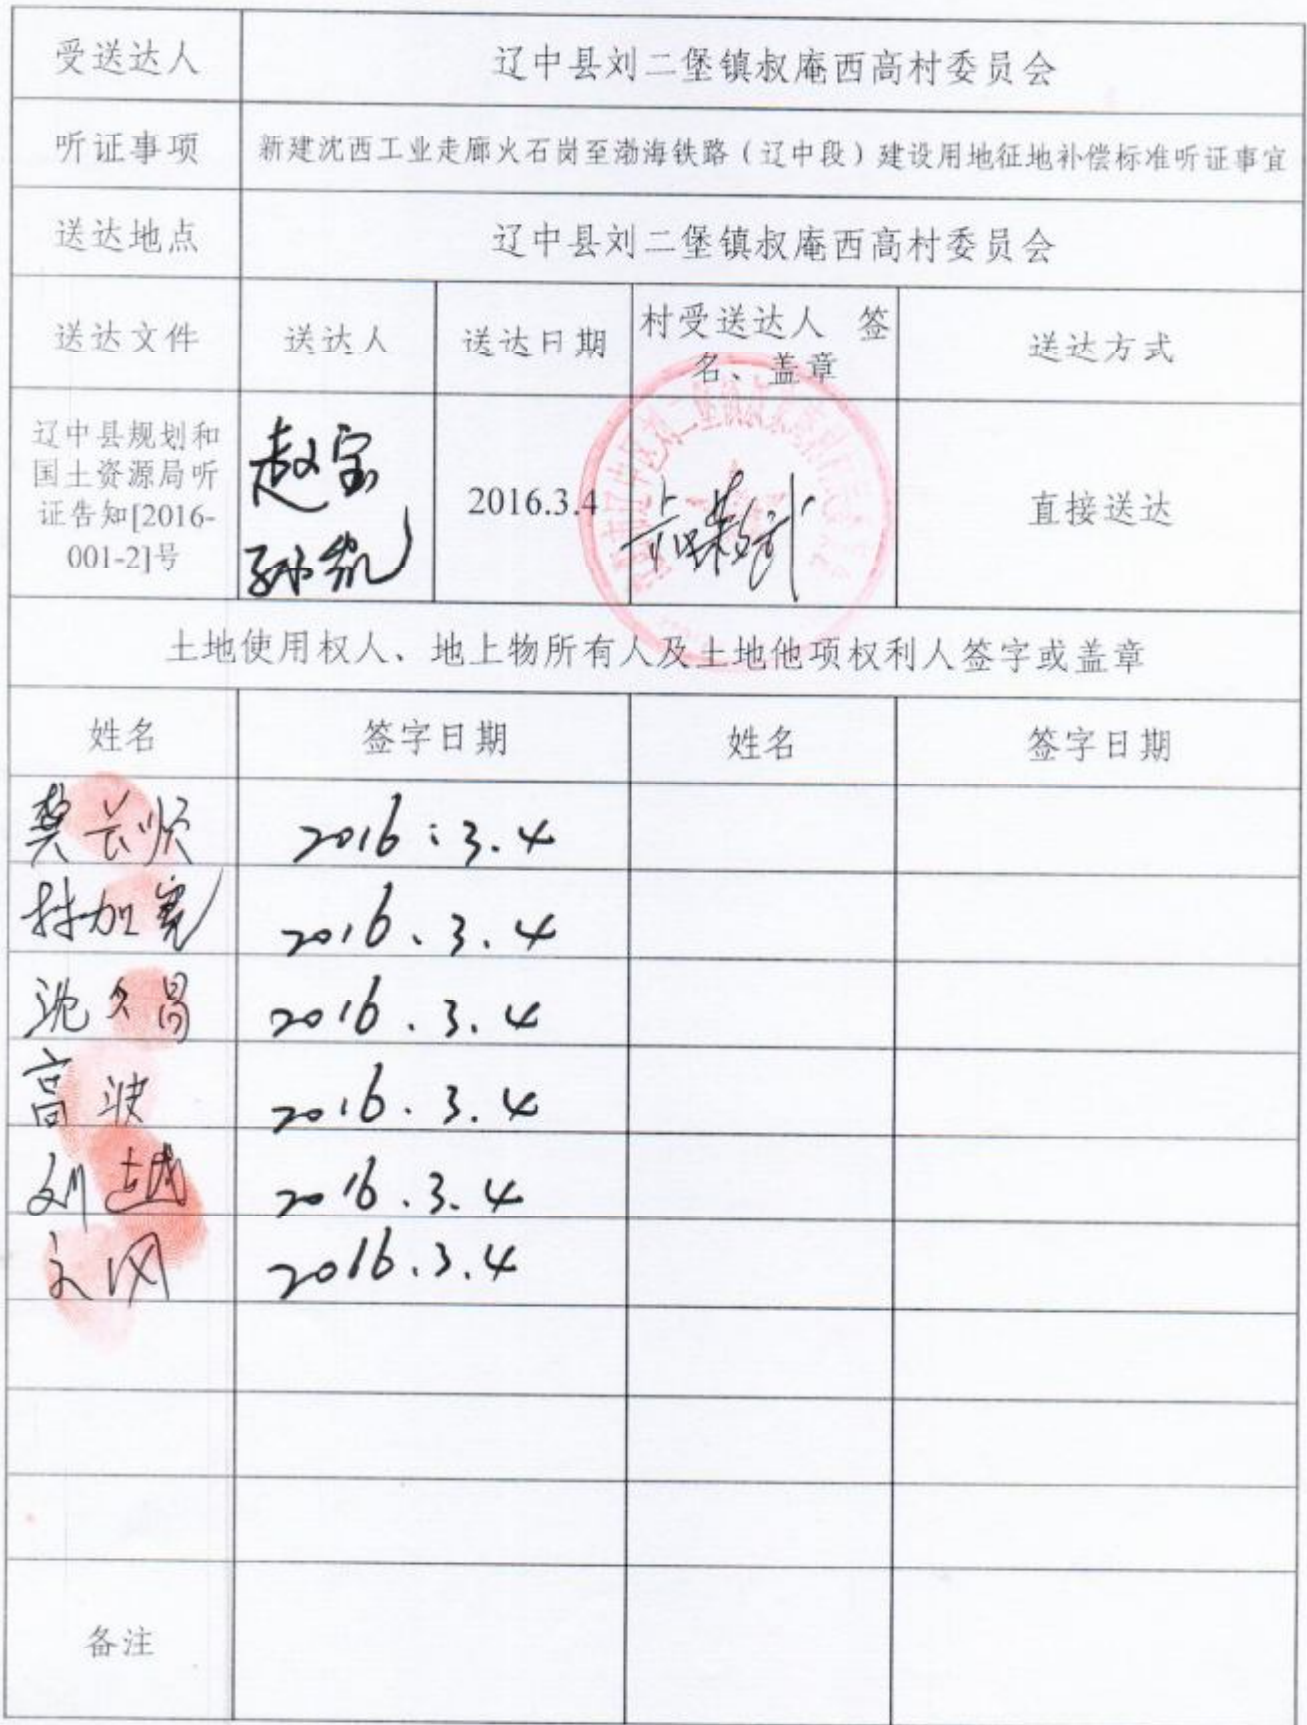 受送达人 辽中县刘二堡镇叔庵西高村委员会
听证事项 新建沈西工业走廊火石岗至渤海铁路（辽中段）建设用地征地补偿标准听证事宜
送达地点 辽中县刘二堡镇叔庵西高村委员会
送达文件 送达人 送达日期 村受送达人 签
名、盖章 送达方式
辽中县规划和
国土资源局听
证告知[2016-
001-2]号
赵宝
孙凯
2016.3.4
直接送达
土地使用权人、地上物所有人及土地他项权利人签字或盖章
姓名 签字日期 姓名 签字日期
樊长顺 2016.3.4
2016.3.4
沈久昌 2016.3.4
高波 2016.3.4
刘越 2016.3.4
文冈 2016.3.4
备注